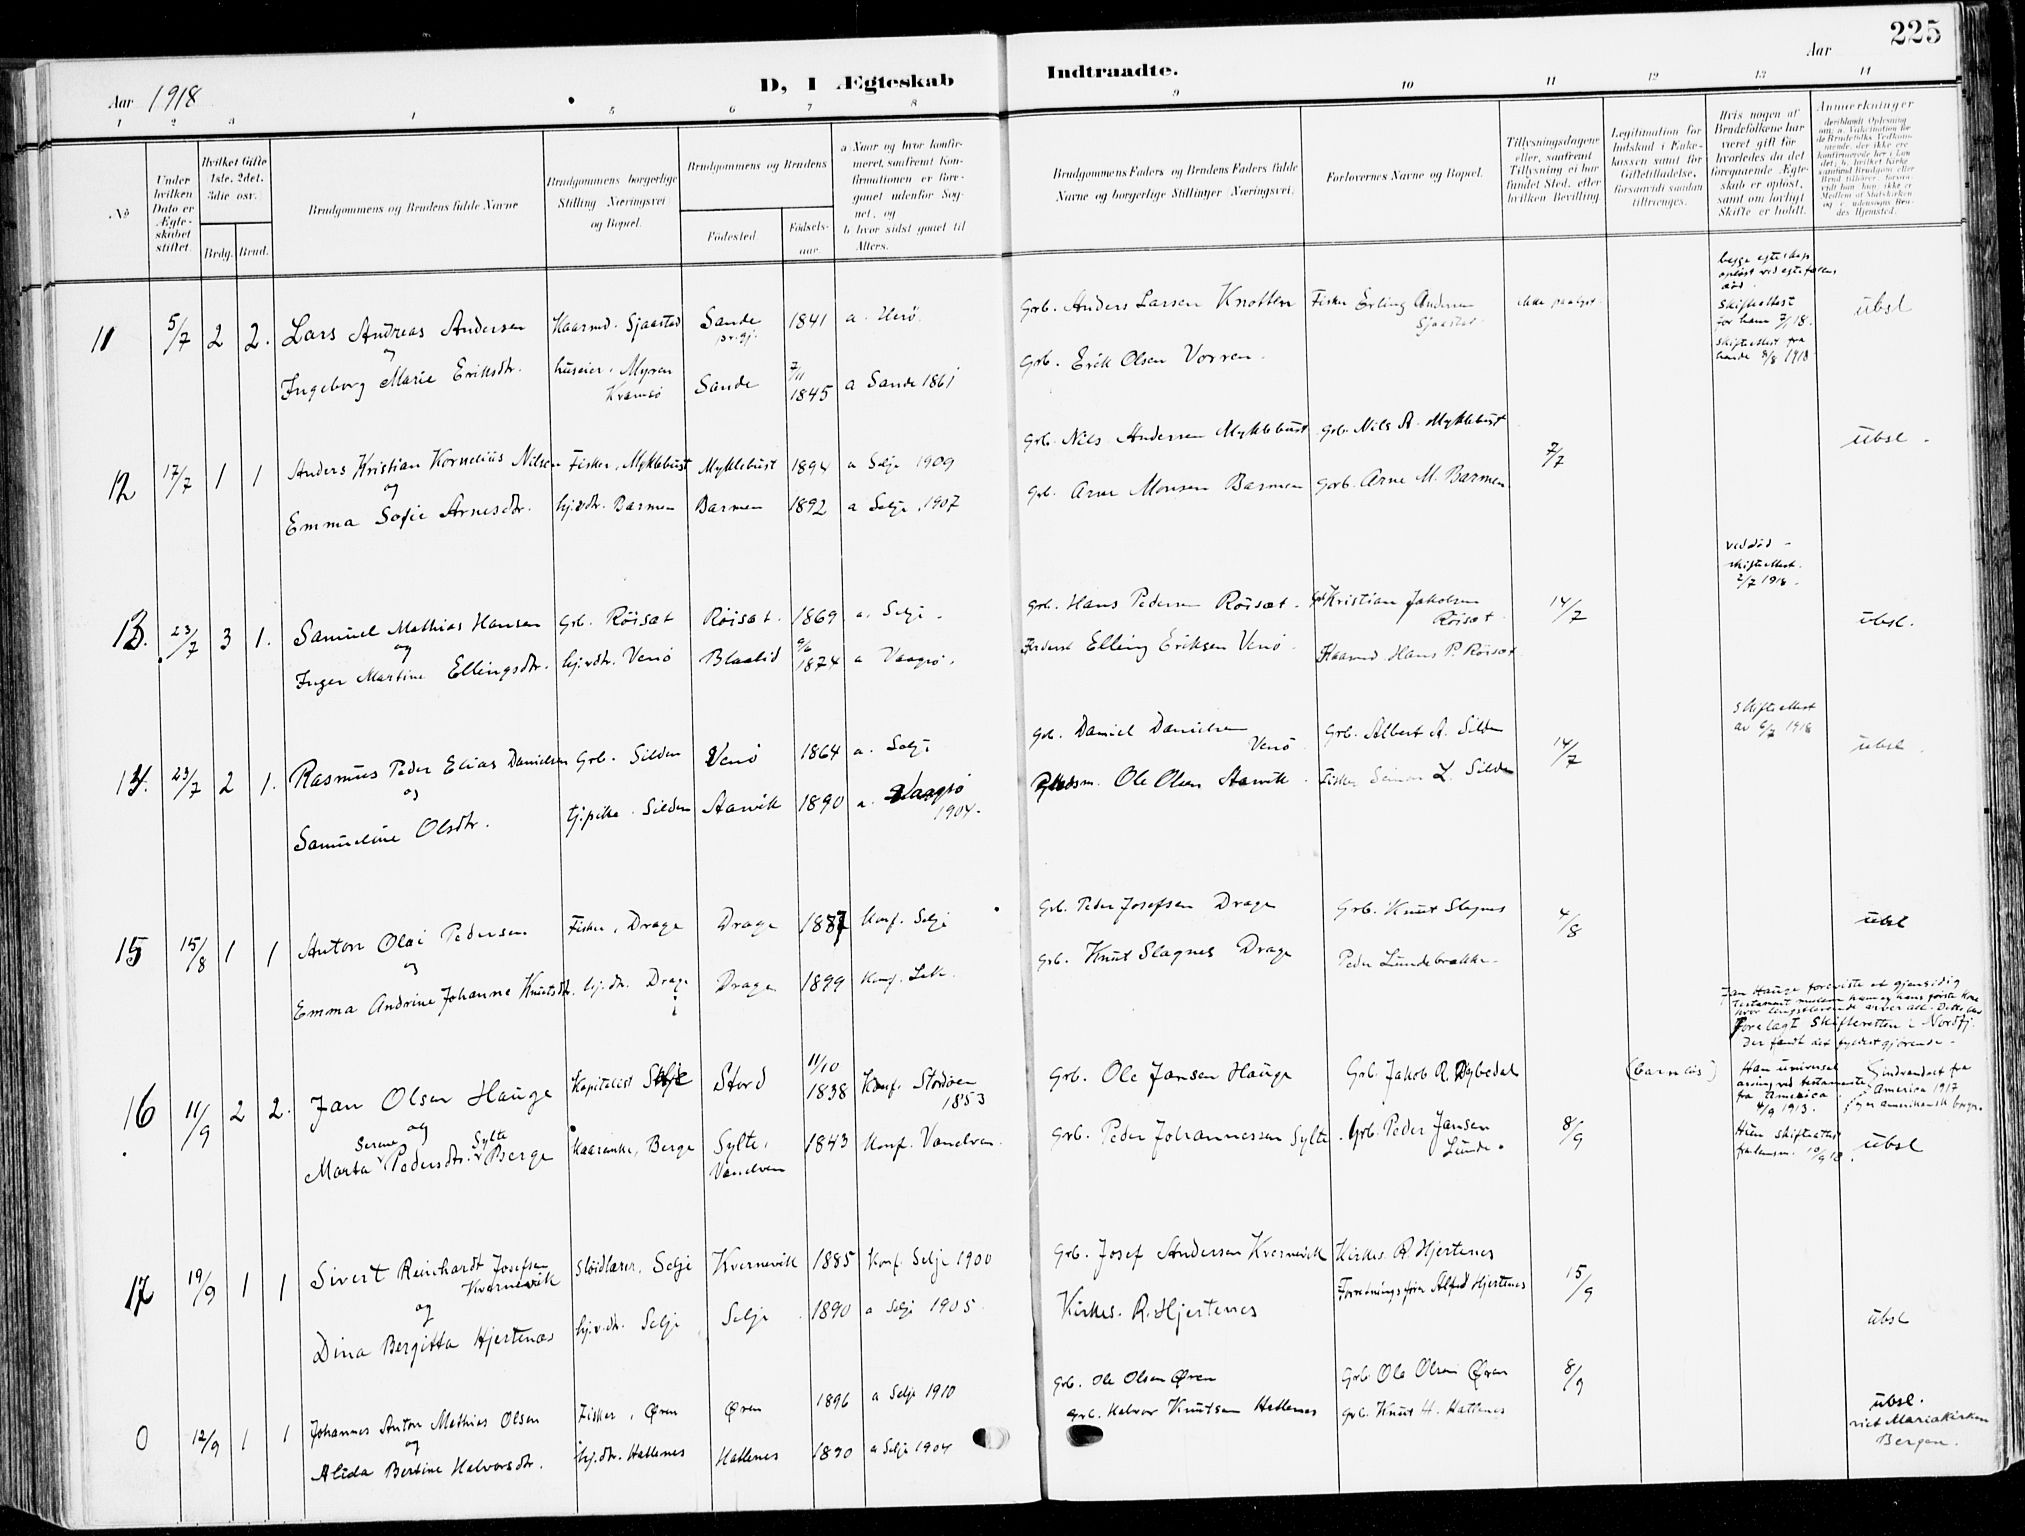 225
Aar 1918
D, I Ægteskab Indtraadte.
Aar
1 2 3 4 5 6 7 8 9 10 11 12 13 14
No
Under hvilken Dato er Ægteskabet stiftet.
Hvilket Gifte 1ste, 2det, 3die osv.
Brdg. Brud.
Brudgommens og Brudens fulde Navne
Brudgommens borgerlige Stilling Næringsvei og Bopæl.
Brudgommens og Brudens
Fødested.
Fødselsaar
a Naar og hvor konfirmeret, saafremt Konfirmationen er foregaaet udenfor Sognet, og
b hvor sidst gaaet til Alters.
Brudgommens Faders og Brudens Faders fulde Navne og borgerlige Stillinger Næringsvei.
Forlovernes Navne og Bopæl.
Tillysningsdagene eller, saafremt Tillysning ei har fundet Sted, efter hvilken Bevilling
Legitimation for Indskud i Enkekassen samt for Giftetilladelse, forsaavidt saadan tiltrænges.
Hvis nogen af Brudefolkene har været gift før hvorledes da det foregaaende Ægteskab er opløst, samt om lovligt Skifte er holdt.
Anmerkninger
11 5/7 2 2. Lars Andreas Andersen Kaarmd. Sjaastad Sande pr.gj. 1841 a. Herö. Grb. Anders Larsen Knotten Fisker Erling Andersen Sjaastad. ikke paalyst. ubsl
og
Ingeborg Marie Eriksdtr. huseier, Myren Kvamsö Sande 7/11 1845 a Sande 1861 Grb. Erik Olsen Vorren.
begge egteskap opløst ved egtefællens død.
Skifteattest for ham 7/1 18.
Skifteattest fra hande 8/8 1913
12 17/7 1 1 Anders Kristian Kornelius Nilsen Fisker, Myklebust Myklebust 1894 a Selje 1909 Grb. Nils Andersen Myklebust Grb. Nils A. Myklebust 7/7 ubsl.
og
Emma Sofie Arnesdtr. hj.v.dtr. Barmen Barmen 1892 a Selje 1907 Grb. Arne Monsen Barmen Gorb. Arne M. Barmen
13. 23/7 3 1. Samuel Mathias Hansen Grb. Röisæt Röisæt. 1869 a. Selje. Grb. Hans Pedersen Röisæt. Gb Kristian Jakobsen Röisæt. 14/7 ubsl.
og
Inger Martine Ellingsdtr. hj.v.dtr. Venö Blaalid 9/6 1874 a Vaagsö. Elling Eriksen Venö. Kaarmd Hans P. Röisæt
ved död - skifteattest. 2/7 1918.
14. 23/7 2 1. Rasmus Peder Elias Danielsen Grb. Silden Venö 1864 a. Selje Grb. Daniel Danielsen Venö Grb. Albert A. Silden 14/7 ubsl.
og
Samueline Olsdtr. tj.pike. Silden Aarvik 1890 a. Vaagsö 1904. Ole Olsen Aarvik. Fisker Simon L. Silden
skifteattest av 6/7 1918
15 15/8 1 1 Anton Olai Pedersen Fisker, Drage Drage 1887 Konf. Selje Grb. Peder Josefsen Drage Grb. Knut Slagnes 4/8 ubsl
og
Emma Andrine Johanne Knutsdtr. hj.dtr. Drage Drage 1899 Konf. Selje. Grb. Knut Slagnes Drage Peder Lundebrække.
Jan Hauge foreviste et gjensidig
testament mellem ham og hans første kone
hvor længstlevende arver alt. Dette blev
forelagt Skifteretten i Nordfj.
Der fandt det fyldestgjørende.
16 11/9 2 2. Jan Olsen Hauge Kapitalist Selje Stord 11/10 1838 Konf. Stordöen 1853 Grb. Ole Jansen Hauge Grb. Jakob R. Dybedal (barnløs)
og
Marta Serene Pedersdtr. Sylte Berge Kaarenke, Berge Sylte, Vanelven 1843 Konf. Vanelven. Grb. Peder Johannessen Sylte. Grb. Peder Jansen Lunde. 8/9 ubsl
Han universal arving ved testamente fra America 4/9 1913.
Indvandret fra America 1917 er amerikansk borger.
Hun skifteattest fra lensm. 10/9 18.
17 19/9 1 1 Sivert Reinhardt Josefsen Kvernevik Sløidlærer, Selje Kvernevik 1885 Konf. Selje 1900 Grb. Josef Andersen Kvernevik Kirkes. R. Hjertenes 15/9
og
Dina Bergitta Hjertenæs hj.v.dtr. Selje Selje 1890 a Selje 1905. Kirkes. R. Hjertenes Forretningsfører Alfred Hjertenes ubsl
0 12/9 1 1 Johannes Anton Mathias Olsen Fisker, Øren Øren 1896 a Selje 1910 Grb. Ole Olsen Øren Grb. Ole Olsen Øren 8/9 ubsl. viet Mariakirken Bergen.
og
Alida Bertine Halvorsdtr. hj.dtr. Hatlenes Hatlenes 1890 a Selje 1904 Grb. Halvor Knutsen Hatlenes Grb. Knut H. Hatlenes